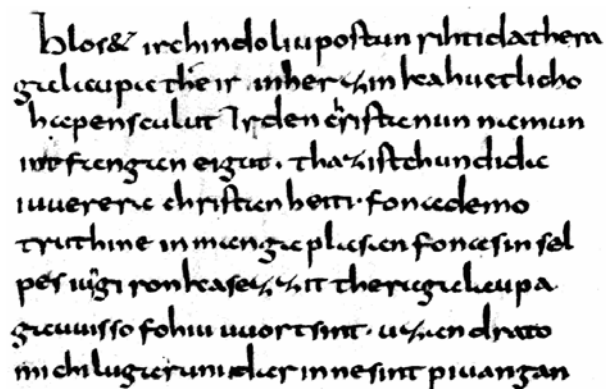 hlos& ir chindo liupostun rihtida thera
galaupa their in herzin kahuctlicho
hapen sculut Ir den christanun namun
intfangan eigut. thaz ist chundida
iuuerera christanheiti. fona demo
truthine in man gaplasan fona sin sel
pes iungiron kasezzit thera galaupa
gauuisso fohiu uuort sint. uzan drato
michilu garuni dar inne sint piuangan